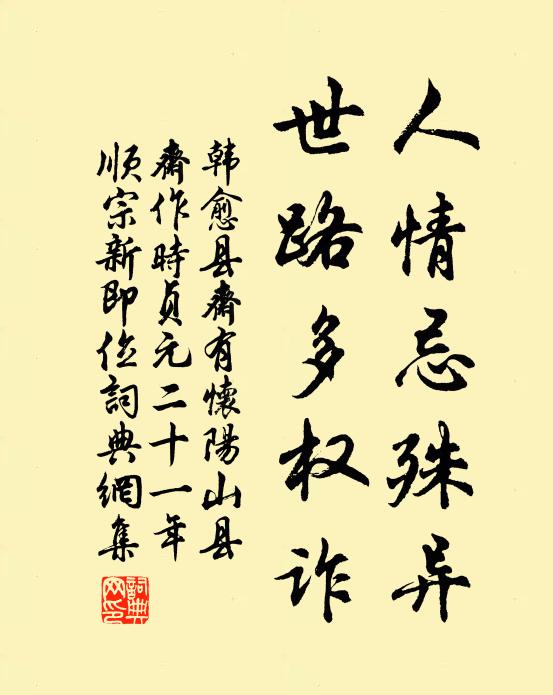 人情忌殊异
世路多权诈
韩愈县斋有懷陽山县
斋作時贞元二十一年
順宗新即位詞典網集
詞典
网印